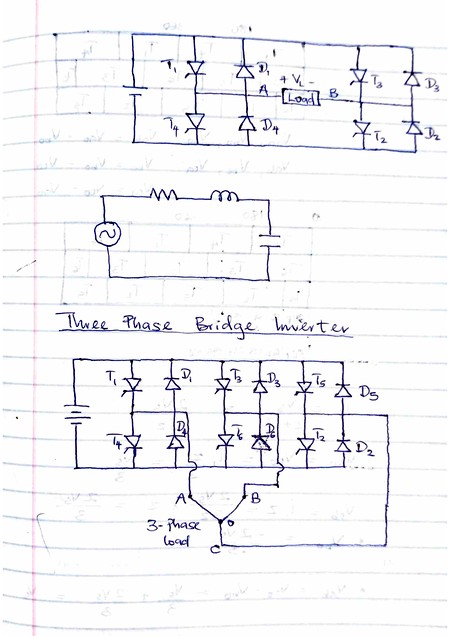 T1 D1 + VL - T3 D3
A Load B
T4 D4 T2 D2
Three Phase Bridge Inverter
T1 D1 T3 D3 T5 D5
T4 D4 T6 D6 T2 D2
A B
3-Phase o
load
C